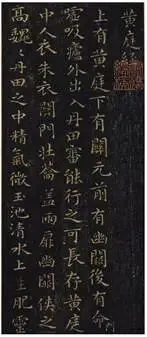 黄庭經
上有黄庭下有關元前有幽闕後有命
噓吸廬外出入丹田審能行之可長存黄庭
中人衣朱衣關門壯蘥蓋兩扉幽闕俠之
高魏〻丹田之中精氣微玉池清水上生肥靈